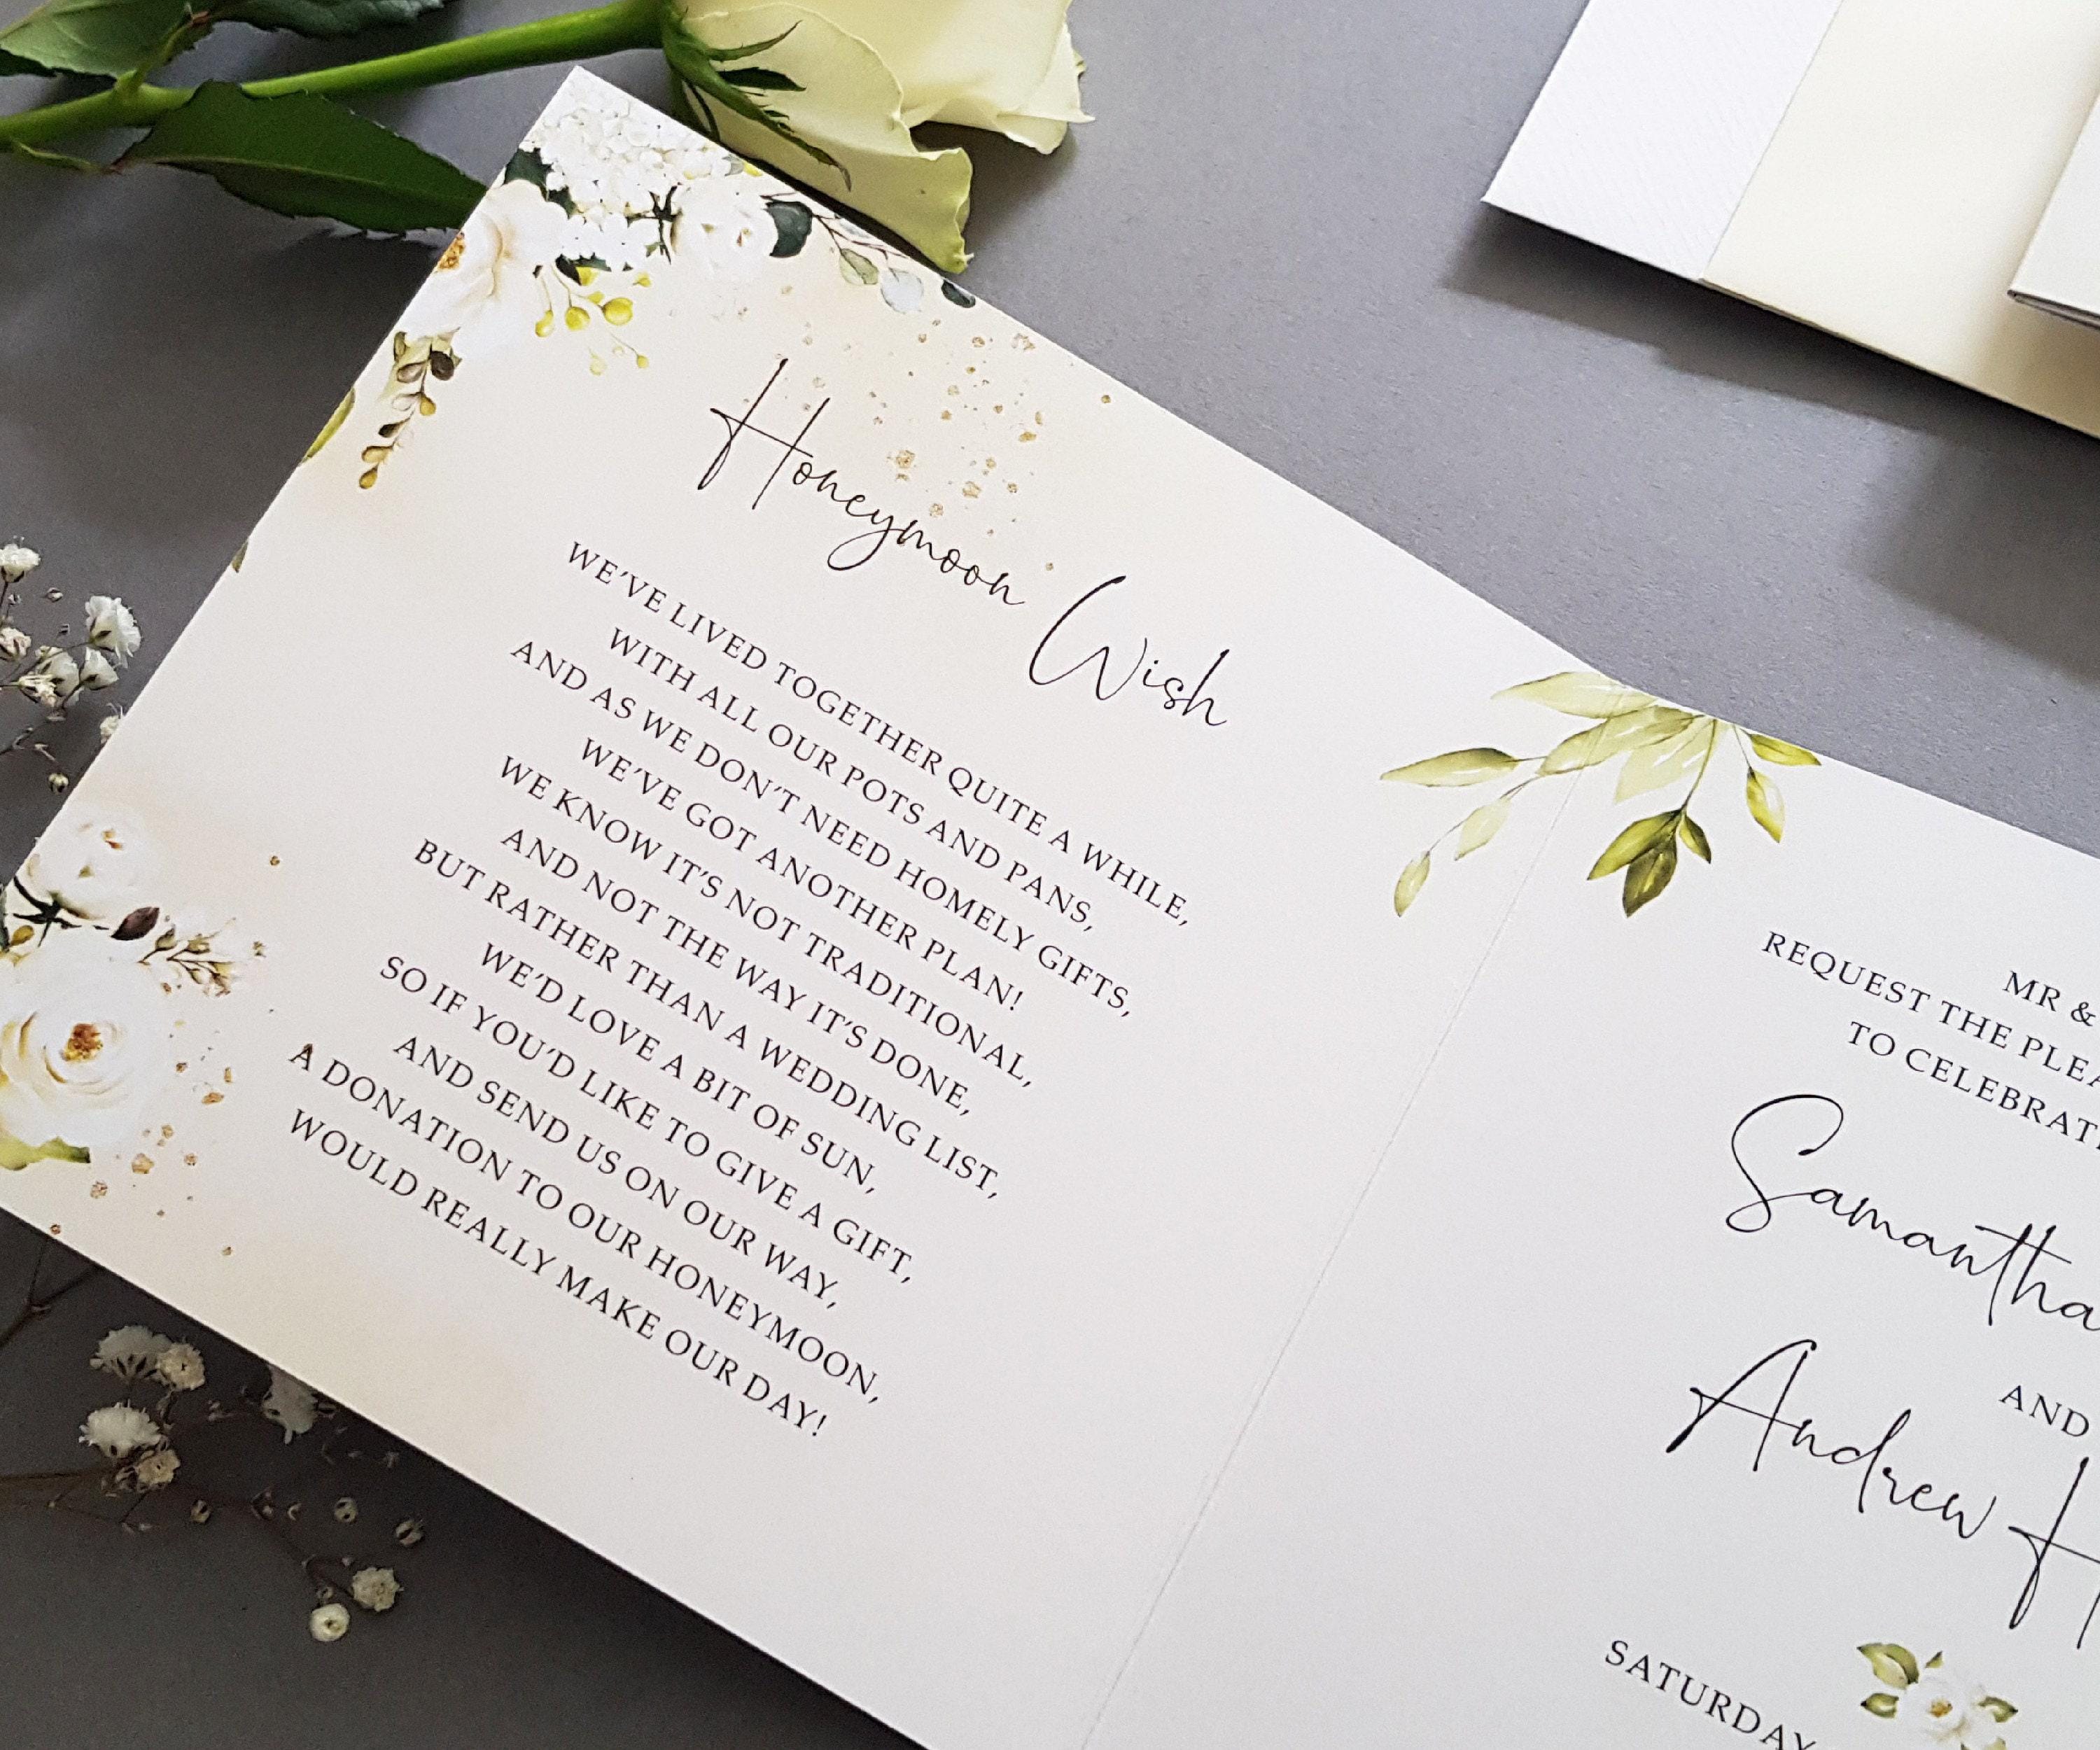 Honeymoon Wish
WE'VE LIVED TOGETHER QUITE A WHILE,
WITH ALL OUR POTS AND PANS,
AND AS WE DON'T NEED HOMELY GIFTS,
WE'VE GOT ANOTHER PLAN!
WE KNOW IT'S NOT TRADITIONAL,
AND NOT THE WAY IT'S DONE,
BUT RATHER THAN A WEDDING LIST,
WE'D LOVE A BIT OF SUN,
SO IF YOU'D LIKE TO GIVE A GIFT,
AND SEND US ON OUR WAY,
A DONATION TO OUR HONEYMOON,
WOULD REALLY MAKE OUR DAY!
MR &
REQUEST THE
TO
Samantha
AND
Andrew
SATURDAY